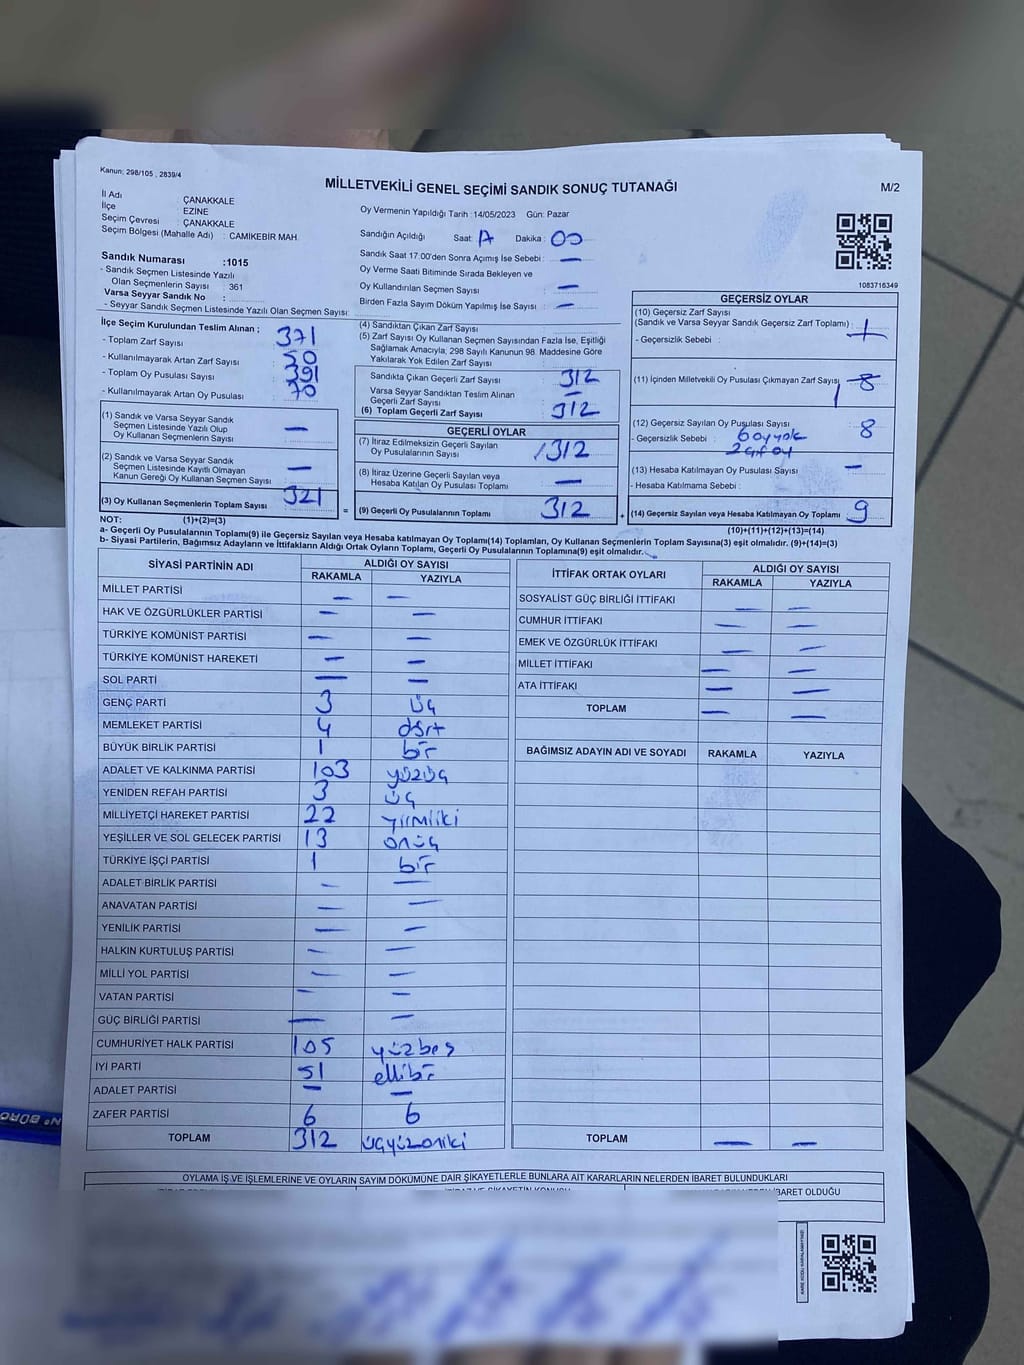 Kanun: 298/105 , 2839/4
MİLLETVEKİLİ GENEL SEÇİMİ SANDIK SONUÇ TUTANAĞI
M/2
İl Adı ÇANAKKALE
İlçe EZİNE
Seçim Çevresi : ÇANAKKALE
Seçim Bölgesi (Mahalle Adı) : CAMIKEBİR MAH.
Oy Vermenin Yapıldığı Tarih :14/05/2023 Gün: Pazar
Sandığın Açıldığı Saat: 17 Dakika : 00
Sandık Saat 17.00'den Sonra Açımış İse Sebebi : —
Oy Verme Saati Bitiminde Sırada Bekleyen ve
Oy Kullandırılan Seçmen Sayısı : —
Birden Fazla Sayım Döküm Yapılmış İse Sayısı : —
1083716349
Sandık Numarası :1015
- Sandık Seçmen Listesinde Yazılı
Olan Seçmenlerin Sayısı : 361
Varsa Seyyar Sandık No :
- Seyyar Sandık Seçmen Listesinde Yazılı Olan Seçmen Sayısı :
İlçe Seçim Kurulundan Teslim Alınan ;
- Toplam Zarf Sayısı : 371
- Kullanılmayarak Artan Zarf Sayısı : 50
- Toplam Oy Pusulası Sayısı : 391
- Kullanılmayarak Artan Oy Pusulası : 70
(1) Sandık ve Varsa Seyyar Sandık
Seçmen Listesinde Yazılı Olup
Oy Kullanan Seçmenlerin Sayısı —
(2) Sandık ve Varsa Seyyar Sandık
Seçmen Listesinde Kayıtlı Olmayan
Kanun Gereği Oy Kullanan Seçmen Sayısı —
(3) Oy Kullanan Seçmenlerin Toplam Sayısı 321
(4) Sandıktan Çıkan Zarf Sayısı :
(5) Zarf Sayısı Oy Kullanan Seçmen Sayısından Fazla İse, Eşitliği
Sağlamak Amacıyla, 298 Sayılı Kanunun 98. Maddesine Göre
Yakılarak Yok Edilen Zarf Sayısı :
Sandıkta Çıkan Geçerli Zarf Sayısı : 312
Varsa Seyyar Sandıktan Teslim Alınan
Geçerli Zarf Sayısı : —
(6) Toplam Geçerli Zarf Sayısı : 312
GEÇERLİ OYLAR
(7) İtiraz Edilmeksizin Geçerli Sayılan
Oy Pusulalarının Sayısı : 312
(8) İtiraz Üzerine Geçerli Sayılan veya
Hesaba Katılan Oy Pusulası Toplamı : —
= (9) Geçerli Oy Pusulalarının Toplamı 312
GEÇERSİZ OYLAR
(10) Geçersiz Zarf Sayısı
(Sandık ve Varsa Seyyar Sandık Geçersiz Zarf Toplamı) :
- Geçersizlik Sebebi :
(11) İçinden Milletvekili Oy Pusulası Çıkmayan Zarf Sayısı
(12) Geçersiz Sayılan Oy Pusulası Sayısı : 8
- Geçersizlik Sebebi : 6 oy yok
2 çift oy
(13) Hesaba Katılmayan Oy Pusulası Sayısı : —
- Hesaba Katılmama Sebebi :
+ (14) Geçersiz Sayılan veya Hesaba Katılmayan Oy Toplamı 9
NOT: (1)+(2)=(3)
(10)+(11)+(12)+(13)=(14)
a- Geçerli Oy Pusulalarının Toplamı(9) ile Geçersiz Sayılan veya Hesaba katılmayan Oy Toplamı(14) Toplamları, Oy Kullanan Seçmenlerin Toplam Sayısına(3) eşit olmalıdır. (9)+(14)=(3)
b- Siyasi Partilerin, Bağımsız Adayların ve İttifakların Aldığı Ortak Oyların Toplamı, Geçerli Oy Pusulalarının Toplamına(9) eşit olmalıdır.
SİYASİ PARTİNİN ADI ALDIĞI OY SAYISI
RAKAMLA YAZIYLA
MİLLET PARTİSİ — —
HAK VE ÖZGÜRLÜKLER PARTİSİ — —
TÜRKİYE KOMÜNİST PARTİSİ — —
TÜRKİYE KOMÜNİST HAREKETİ — —
SOL PARTİ — —
GENÇ PARTİ 3 üç
MEMLEKET PARTİSİ 4 dört
BÜYÜK BİRLİK PARTİSİ 1 bir
ADALET VE KALKINMA PARTİSİ 103 yüzüç
YENİDEN REFAH PARTİSİ 3 üç
MİLLİYETÇİ HAREKET PARTİSİ 22 yirmiiki
YEŞİLLER VE SOL GELECEK PARTİSİ 13 onüç
TÜRKİYE İŞÇİ PARTİSİ 1 bir
ADALET BİRLİK PARTİSİ — —
ANAVATAN PARTİSİ — —
YENİLİK PARTİSİ — —
HALKIN KURTULUŞ PARTİSİ — —
MİLLİ YOL PARTİSİ — —
VATAN PARTİSİ — —
GÜÇ BİRLİĞİ PARTİSİ — —
CUMHURİYET HALK PARTİSİ 105 yüzbeş
İYİ PARTİ 51 ellibir
ADALET PARTİSİ — —
ZAFER PARTİSİ 6 6
TOPLAM 312 üçyüzoniki
İTTİFAK ORTAK OYLARI ALDIĞI OY SAYISI
RAKAMLA YAZIYLA
SOSYALİST GÜÇ BİRLİĞİ İTTİFAKI — —
CUMHUR İTTİFAKI — —
EMEK VE ÖZGÜRLÜK İTTİFAKI — —
MİLLET İTTİFAKI — —
ATA İTTİFAKI — —
TOPLAM — —
BAĞIMSIZ ADAYIN ADI VE SOYADI RAKAMLA YAZIYLA
TOPLAM — —
OYLAMA İŞ VE İŞLEMLERİNE VE OYLARIN SAYIM DÖKÜMÜNE DAİR ŞİKAYETLERLE BUNLARA AİT KARARLARIN NELERDEN İBARET BULUNDUKLARI
İBARET OLDUĞU